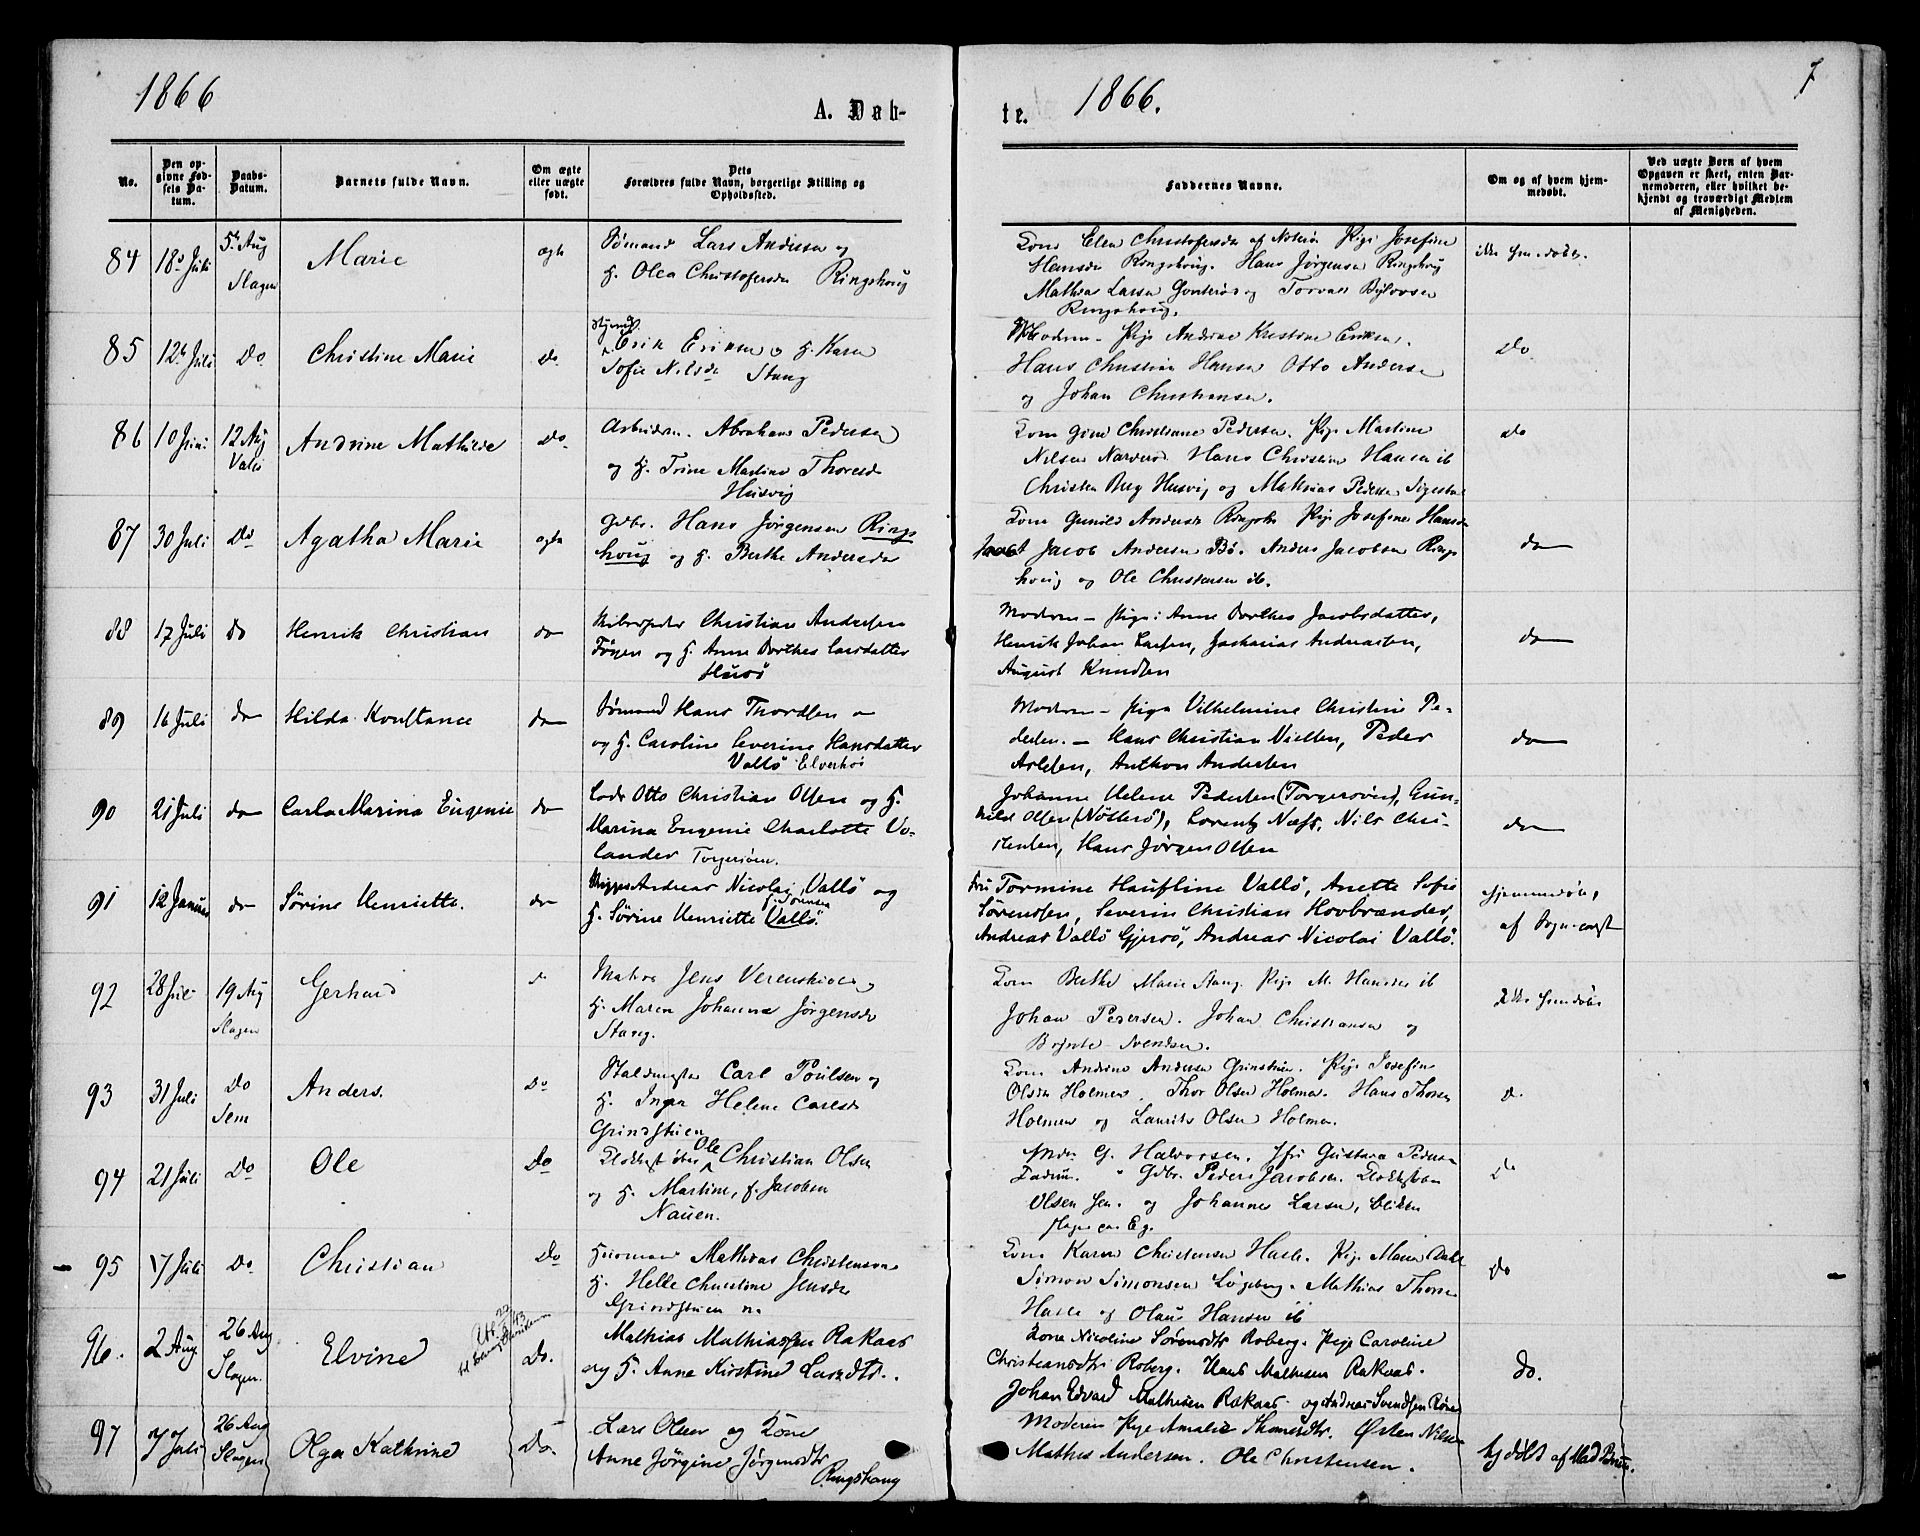 1866
A. Døb-
te.
1866.
7
No.
Den op-
givne Fød-
sels Da-
tum.
Daabs-
Datum.
Barnets fulde Navn.
Om ægte
eller uægte
født.
Dets
Forældres fulde Navn, borgerlige Stilling og
Opholdssted.
Faddernes Navne.
Om og af hvem hjem-
medøbt.
Ved uægte Børn af hvem
Opgaven er skeet, enten Bar-
nemoderen, eller hvilket be-
kjendt og troværdigt Medlem
af Menigheden.
84
18 Juli
5 Aug
Slagen
Marie
ægte
Sømand Lars Andersen og
H. Olea Christofersdr Ringshoug
Kone Elen Christofersdr af Pige Josefine
Hansdr Ringshoug. Hans Jørgensen Ringshoug
Mathias Larsen og
Ringshoug.
85
12 Juli
Do
Christine Marie
Do
Erik Eriksen og H. Karen
Sofie Nilsdr Stang
Moderen – Pige Andrine Kristine Eriksen.
Hans Christian Hansen Otto Andersen
og Johan Christiansen.
Do
86
10 Juni
12 Aug
Vallø
Andrine Mathilde
Do.
Arbeidsm. Abraham Pedersen
og H. Trine Martine Thoresdr
Husvig
Kone Christiane Pedersen. Pige Martine
Nilsen Hans Christian Hansen ib
Christen Berg Husvig og Mathias Pedersen
do
87
30 Juli
Do
Agatha Marie
ægte
Gdbr. Hans Jørgensen Rings
houg og H. Berthe Andersdr
Kone Gunild Andersdr Ringshg Pige Josefine Hansdr
Jacob Andersen Bø. Anders Jacobsen Rings
houg og Ole Christensen ib.
do
88
17 Juli
do
Henrik Christian
do
Christian Andersen
og H. Anne Dorthea Larsdatter
Husø
Moderen – Pige: Anne Dorthea Jacobsdatter,
Henrik Johan Larsen, Zacharias Andreassen,
August Knudsen
do
89
16 Juli
do
Hilda Konstance
do
Sømand Hans Thordsen
og H. Caroline Severine Hansdatter
Vallø Elverhøi
Moderen – Pige Vilhelmine Christine Pe-
dersen. – Hans Christian Nielsen, Peder
Anthon Andersen
do
90
21 Juli
do
Carla Marina Eugenie
do
Lods Otto Christian Olsen og H.
Marina Eugenie Charlotte Vo-
lander Torgersøen.
Johanne Helene Pedersen (Torgersøen), Gun-
hild Olsen (Nøtterø), Lorentz Næss, Nils Chri-
stensen, Hans Jørgen Olsen
do
91
12 Januar
do
Sørine Henriette.
do
Skipper Andreas Nicolai Vallø og
H. Sørine Henriette Vallø.
f. Sørensen
Fru Tormine Vallø, Anette Sofie
Sørensen, Severin Christian Hovbrænder,
Andreas Vallø Gjersø, Andreas Nicolai Vallø.
Hjemmedøbt
af Sogneprest
92
19 Aug
Slagen
Gerhard
Matros Jens
H. Maren Johanne Jørgensdr
Stang.
Kone Berthe Marie Stang. Pige M. Hansdr ib
Johan Pedersen. Johan Christiansen og
Svendsen.
93
31 Juli
Do
Sem
Anders.
Do
Carl Poulsen og
H. Inger Helene Carlsdr
Grindstuen
Kone Andrine Andersen Grinstuen. Pige Josefine
Olsdr Holmen. Thor Olsen Holmen. Hans Thorsen
Holmen og Laurits Olsen Holmen.
94
21 Juli
Do
Ole
Do
Ole Christian Olsen
og H. Martine, f. Jacobsen
Nauen.
G. Halvorsen. Jfr Gustava Pedersen
Gdbr. Peder Jacobsen.
Olsen og Johannes Larsen,
95
7 Juli
Do
Christian
Do
Mathias Christensen
H. Helle Christine Jensdr
Grindstuen
Kone Karen Christensen Hasle. Pige Maren
Simon Simonsen Løgeberg. Mathias Thorsen
Hasle og Olaus Hansen ib
Do
96.
2 Aug
26 Aug.
Slagen.
Elvine
Do.
Mathias Mathiassen Rakaas
og H. Anne Kirstine Larsdtr.
Kone Nicoline Sørensdtr Roberg. Pige Caroline
Christiansdtr Roberg. Hans Mathisen Rakaas.
Johan Edvard Mathisen Rakaas og Andreas Svendsen
do.
97
7 Juli
26 Aug
Slagen
Olga Kathrine
Do.
Lars Olsen og Kone
Anne Jørgine Jørgensdtr
Ringshaug
Moderen Pige Amalie Thomasdtr. Østen Nilsen
Mathis Andersen. Ole Christensen.
hj.døbt af